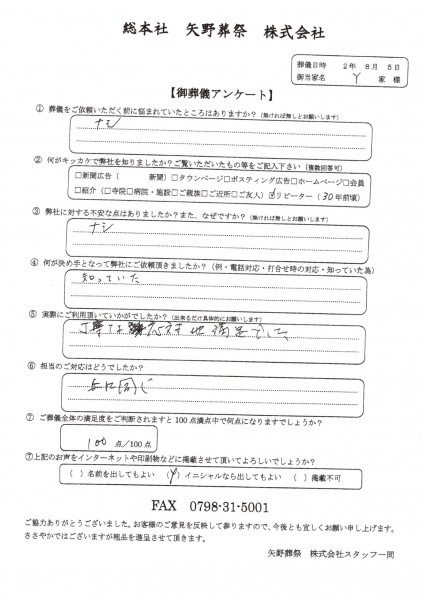 総本社 矢野葬祭 株式会社
葬儀日時 2年 8月 5日
御当家名 Y 家 様
【御葬儀アンケート】
① 葬儀をご依頼いただく前に悩まれていたところはありますか？(無ければ無しとお願いします)
ナシ
② 何がキッカケで弊社を知りましたか？ご覧いただいたもの等をご記入下さい(複数回答可)
□新聞広告（ 新聞）□タウンページ□ポスティング広告□ホームページ□会員
□紹介（□寺院□病院・施設□ご親族□ご近所□ご友人）☑リピーター（30年前頃）
③ 弊社に対する不安な点はありましたか？また、なぜですか？(無ければ無しとお願いします)
ナシ
④ 何が決め手となって弊社にご依頼頂きましたか？(例・電話対応・打合せ時の対応・知っていた為)
知っていた
⑤ 実際にご利用頂いていかがでしたか？(出来るだけ具体的にお願いします)
丁寧な応対他満足でした。
⑥ 担当のご対応はどうでしたか？
上に同じ
⑦ ご葬儀全体の満足度をご判断されますと100点満点中で何点になりますでしょうか？
100 点/100点
⑦上記のお声をインターネットや印刷物などに掲載させて頂いてよろしいでしょうか？
（ ）名前を出してもよい （Y）イニシャルなら出してもよい （ ）掲載不可
FAX 0798-31-5001
ご協力ありがとうございました。お客様のご意見を反映して参りますので、今後とも宜しくお願い申し上げます。
ささやかではございますが粗品を進呈させて頂きます。
矢野葬祭 株式会社スタッフ一同